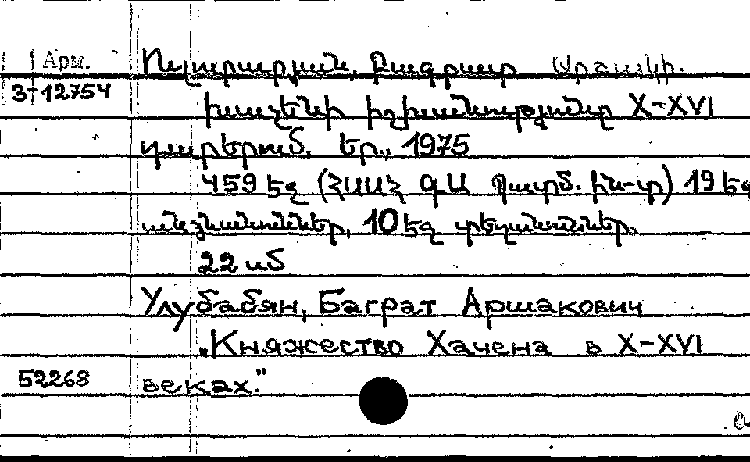 Арм.
Ուլուբաբյան, Բագրատ Արշակի.
3-12754
Խաչենի իշխանությունը X-XVI
դարերում. Եր., 1975
459 եզ (ՀՍՍՀ ԳԱ Պատմ. ին-տ) 19 եզ
անձնանուններ, 10 եզ տեղանուններ.
22 սմ
Улубабян, Баграт Аршакович
„Княжество Хачена в X-XVI
52268 веках."